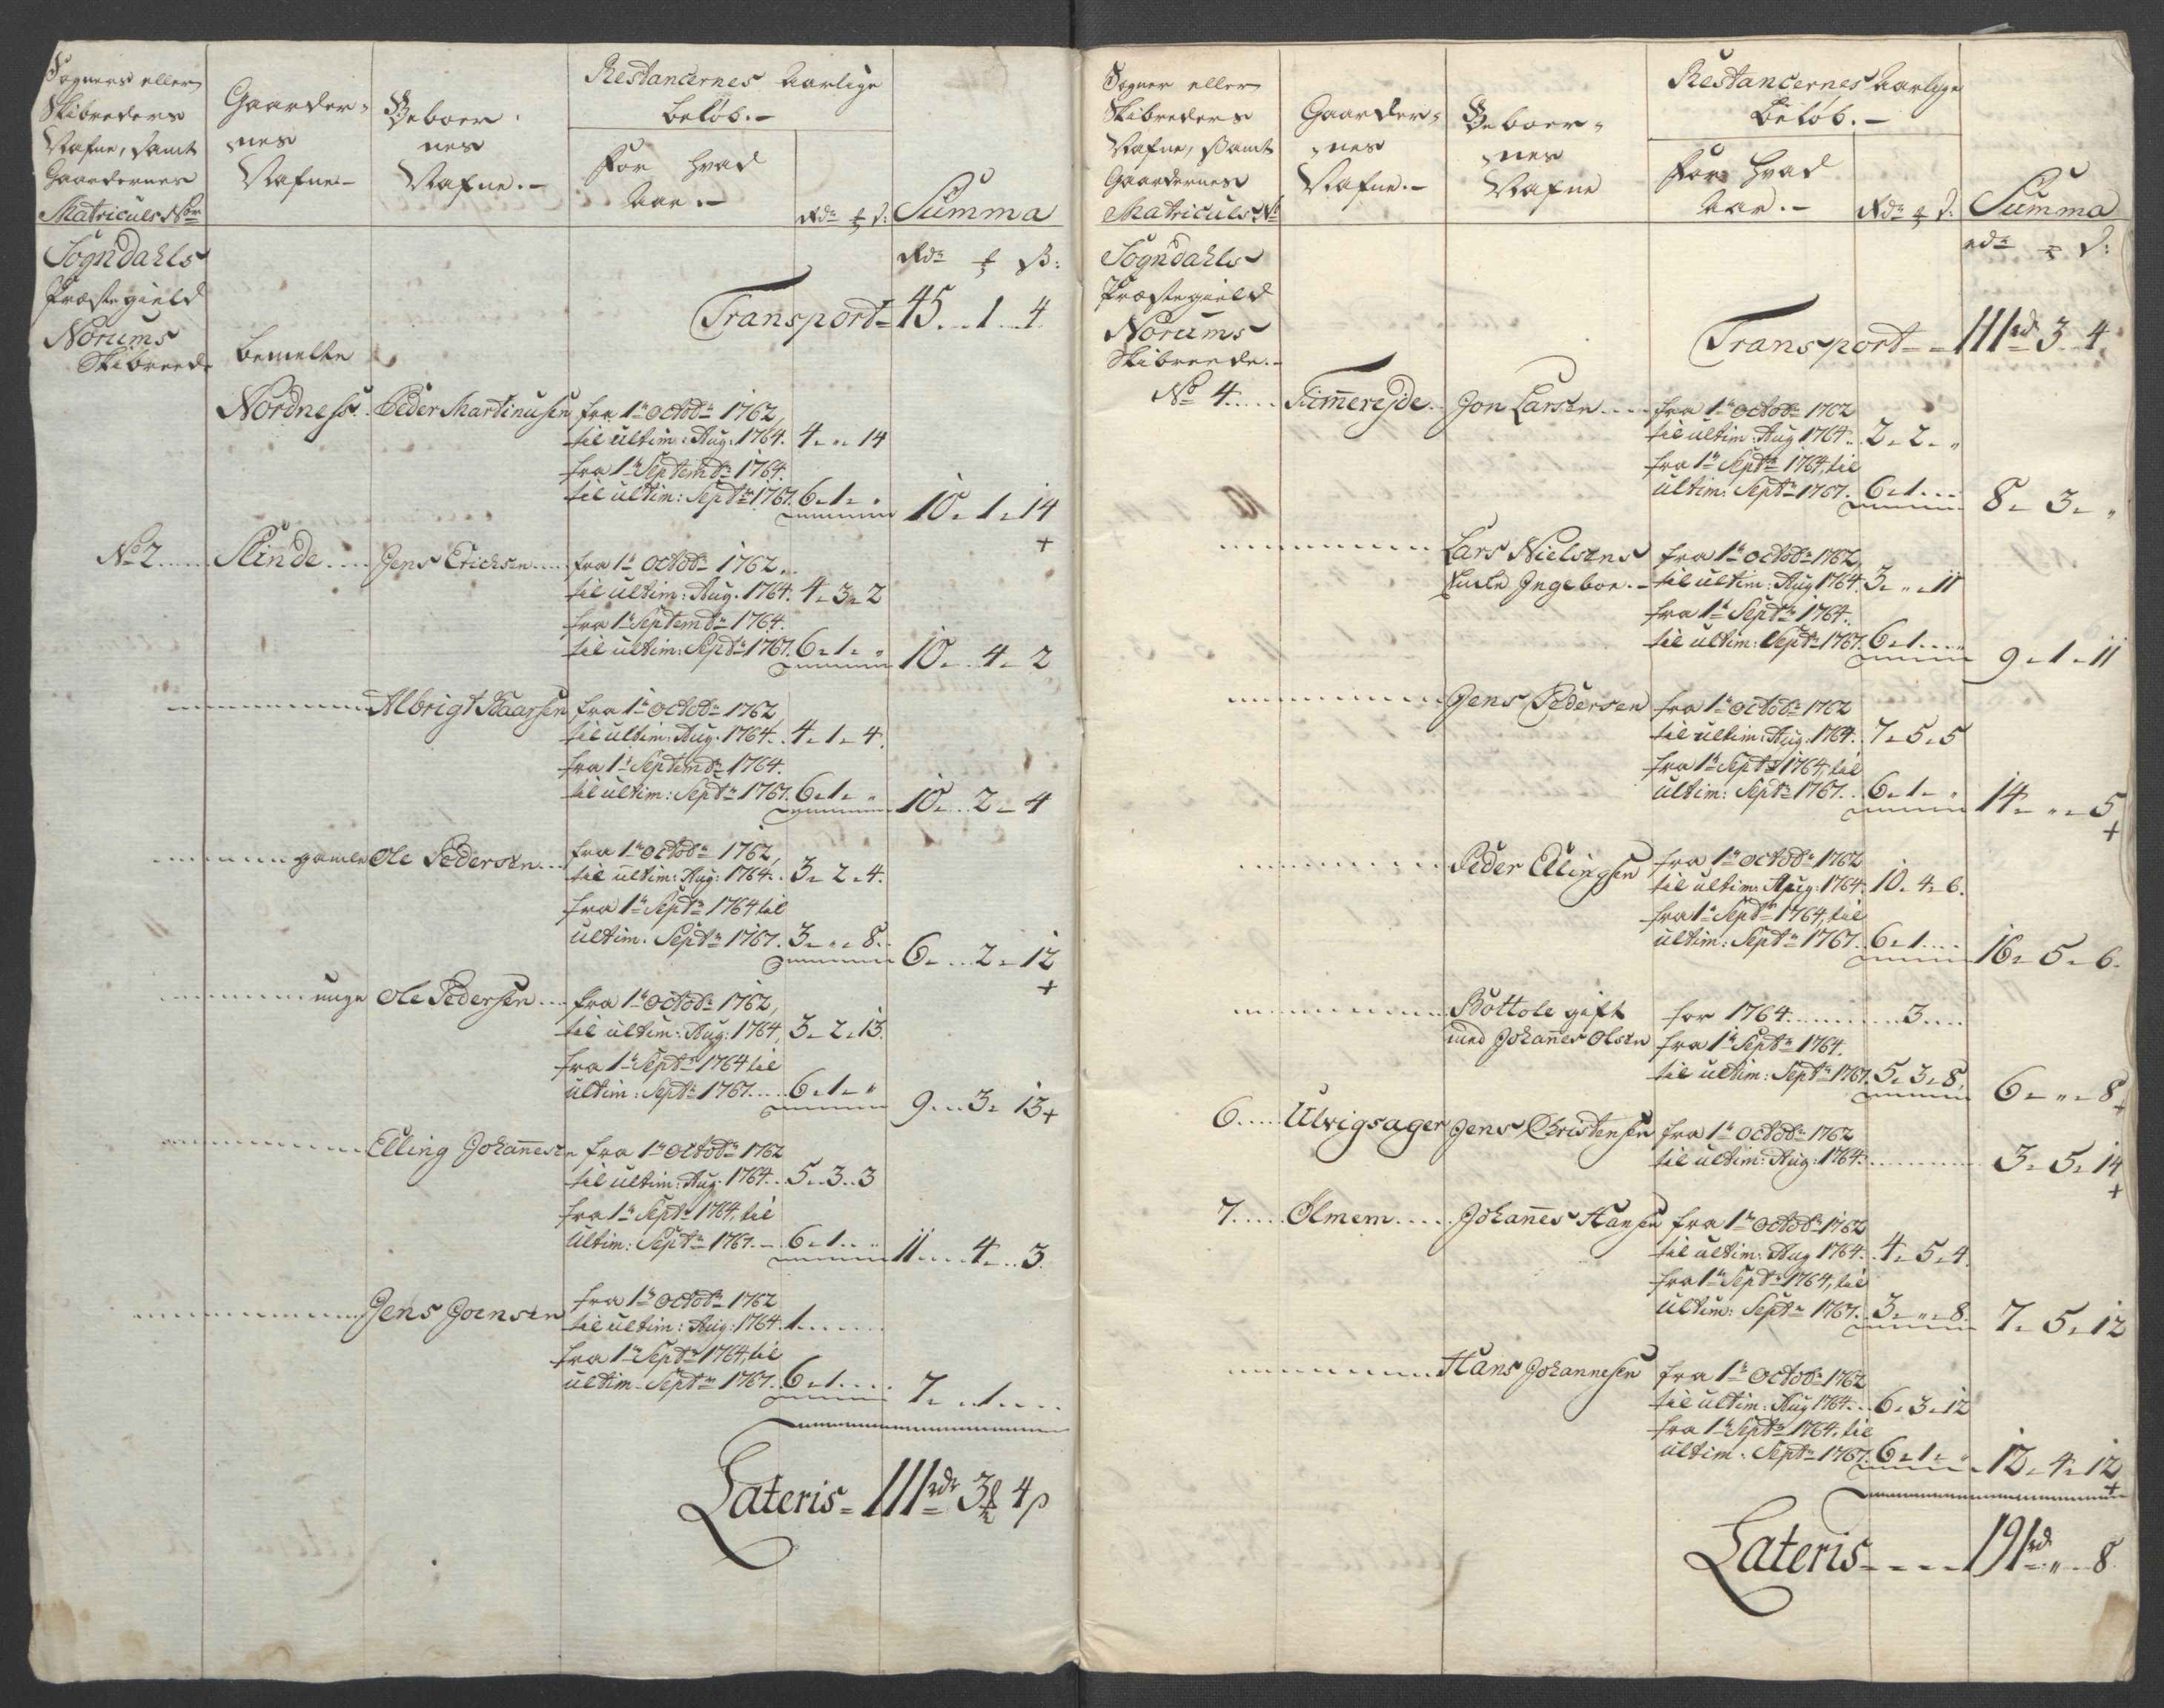 Sogners eller
Skibreders
Nafne, samt
Gaardernes
Matriculs Nr
Gaarder-
nes
Nafne-
Beboer-
nes
Nafne.-
Restancernes Aarlige
Beløb.-
For hvad
Aar.-
Rdr ß:
Summa
Sogndahls
Præstegield
Norums
Skibrede
Rdr ß:
Transport- 45...1...4.
bemelte
Nordness. Peder Martinusen fra 1te Octobr 1762,
til ultim: Aug: 1764. 4. „. 14
fra 1te Septembr 1764.
til ultim: Septbr 1767. 6. 1. „ 10. 1. 14
+
No 2..... Slinde.... Jens Erichsen.... fra 1te Octobr 1762.
til ultim: Aug. 1764. 4. 3. 2
fra 1te Septembr 1764.
til ultim: Septbr 1767. 6. 1. „ 10. 4. 2
Albrigt Kaarsen fra 1te Octobr 1762,
til ultim: Aug. 1764. 4. 1. 4.
fra 1te Septembr 1764.
til ultim: Septbr 1767. 6. 1. „ 10. 2. 4
gamle Ole Pedersen... fra 1te Octobr 1762,
til ultim: Aug: 1764. 3. 2. 4.
fra 1te Septbr 1764 til
ultim. Septbr 1767. 3. „. 8. 6. 2. 12
+
unge Ole Pedersen.... fra 1te Octobr 1762,
til ultim: Aug: 1764, 3. 2. 13.
fra 1te Septbr 1764 til
ultim: Septbr 1767.... 6. 1. „ 9... 3. 13 +
Elling Johannesen fra 1te Octobr 1762
til ultim: Aug. 1764.. 5. 3. 3
fra 1te Septbr 1764, til
ultim: Septbr 1767.- 6. 1.. „ 11.... 4... 3.
Jens Joensen fra 1te Octobr 1762
til ultim: Aug: 1764. 1.......
fra 1te Septbr 1764, til
ultim. Septbr 1767. 6. 1.... 7. . 1....
Lateris- 111rdr 3 4ß
Sogner eller
Skibreders
Nafne, samt
Gaardernes
Matriculs No
Gaarder-
nes
Nafne.-
Beboer-
nes
Nafne
Restancernes Aarlige
Beløb.-
For hvad
Aar.-
Rdr ß:
Summa
Sogndahls
Præstegield
Norums
Skibreede.-
rdr ß:
Transport- - 111rdr 3. 4.
No 4..... Timereÿde.. Jon Larsen..... fra 1te Octobr 1762
til ultim: Aug 1764.. 2. 2. „
fra 1te Septbr 1764, til
ultim: Septbr 1767. 6. 1... 8. 3. „
Lars Nielsens fra 1te Octobr 1762,
Enke Ingeboe.- til ultim: Aug 1764. 3. „. 11
fra 1te Septbr 1764.
til ultim: Septbr 1767. 6. 1.... 9. 1. 11
Jens Pedersen fra 1te Octobr 1762
til ultim: Aug: 1764. 7. 5. 5
fra 1te Septbr 1764, til
ultim: Septbr 1767.. 6. 1. „ 14. „. 5
+
Peder Ellingsen fra 1te Octobr 1762
til ultim: Aug: 1764. 10. 4. 6.
fra 1te Septbr 1764, til
ultim: Septbr 1767. 6. 1.... 16. 5. 6.
Bottole gift for 1764............ 3....
med Johannes Olsen fra 1te Septbr 1764.
til ultim: Septbr 1767. 5. 3. 8. 6. „. 8
+
6..... Ulvigsager Jens Christensen fra 1te Octobr 1762
til ultim: Aug: 1764............ 3. 5. 14
+
7..... Ølmem..... Johannes Hansen fra 1te Octobr 1762
til ultim: Aug 1764. 4. 5. 4.
fra 1te Septbr 1764, til
ultim: Septbr 1767. 3. „. 8. 7. 5. 12
Hans Johannesen fra 1te Octobr 1762
til ultim: Aug 1764.. 6. 3. 12
fra 1te Septbr 1764, til
ultim. Septbr 1767. 6. 1. „ 12. 4. 12
+
Lateris- - - - 191rd „.. 8.